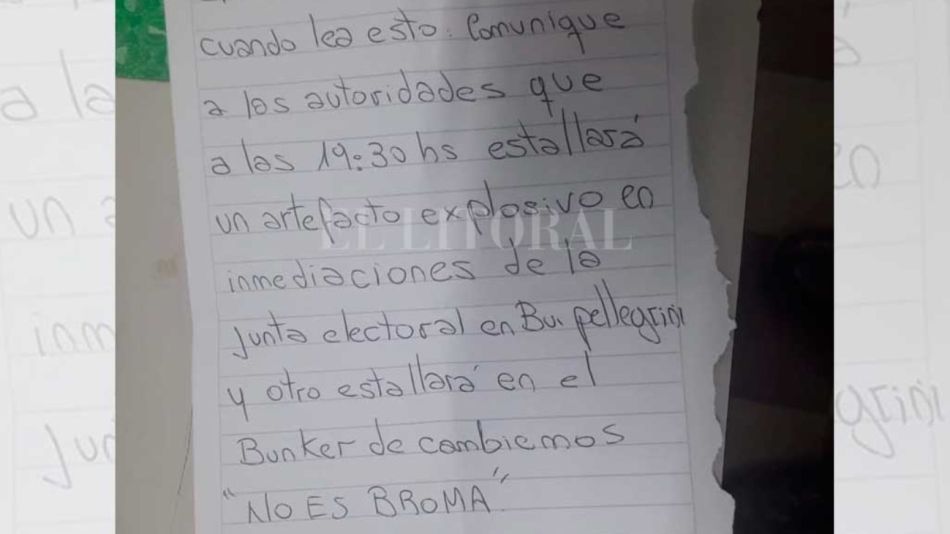 cuando lea esto. Comunique
a las autoridades que
a las 19:30 hs estallará
un artefacto explosivo en
EL LITORAL
inmediaciones de la
Junta electoral en Bu. pellegrini
y otro estallará en el
Bunker de cambiemos
"NO ES BROMA".